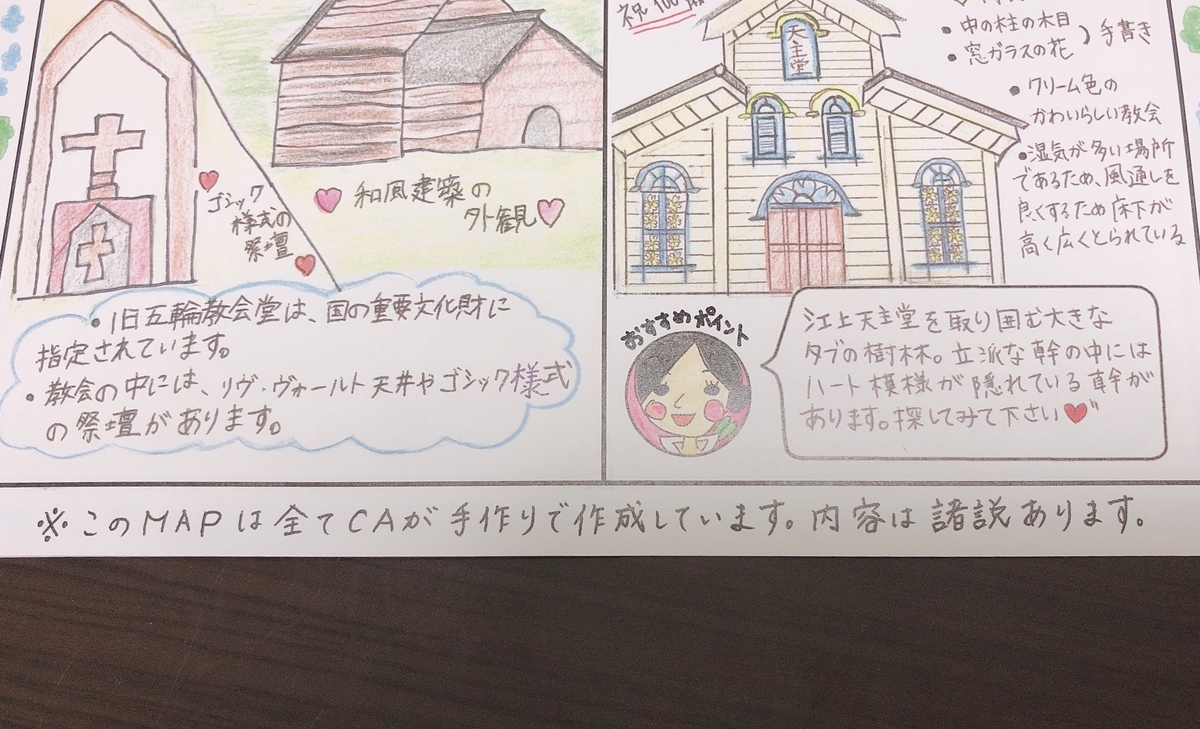 ゴシック
様式の
祭壇
和風建築の
外観
・旧五輪教会堂は、国の重要文化財に
指定されています。
・教会の中には、リヴ・ヴォールト天井やゴシック様式
の祭壇があります。
祝100歳
天主堂
・中の柱の木目
・窓ガラスの花
手書き
・クリーム色の
かわいらしい教会
・湿気が多い場所
であるため、風通しを
良くするため床下が
高く広くとられている
おすすめポイント
江上天主堂を取り囲む大きな
タブの樹林。立派な幹の中には
ハート模様が隠れている幹が
あります。探してみて下さい
※このMAPは全てCAが手作りで作成しています。内容は諸説あります。